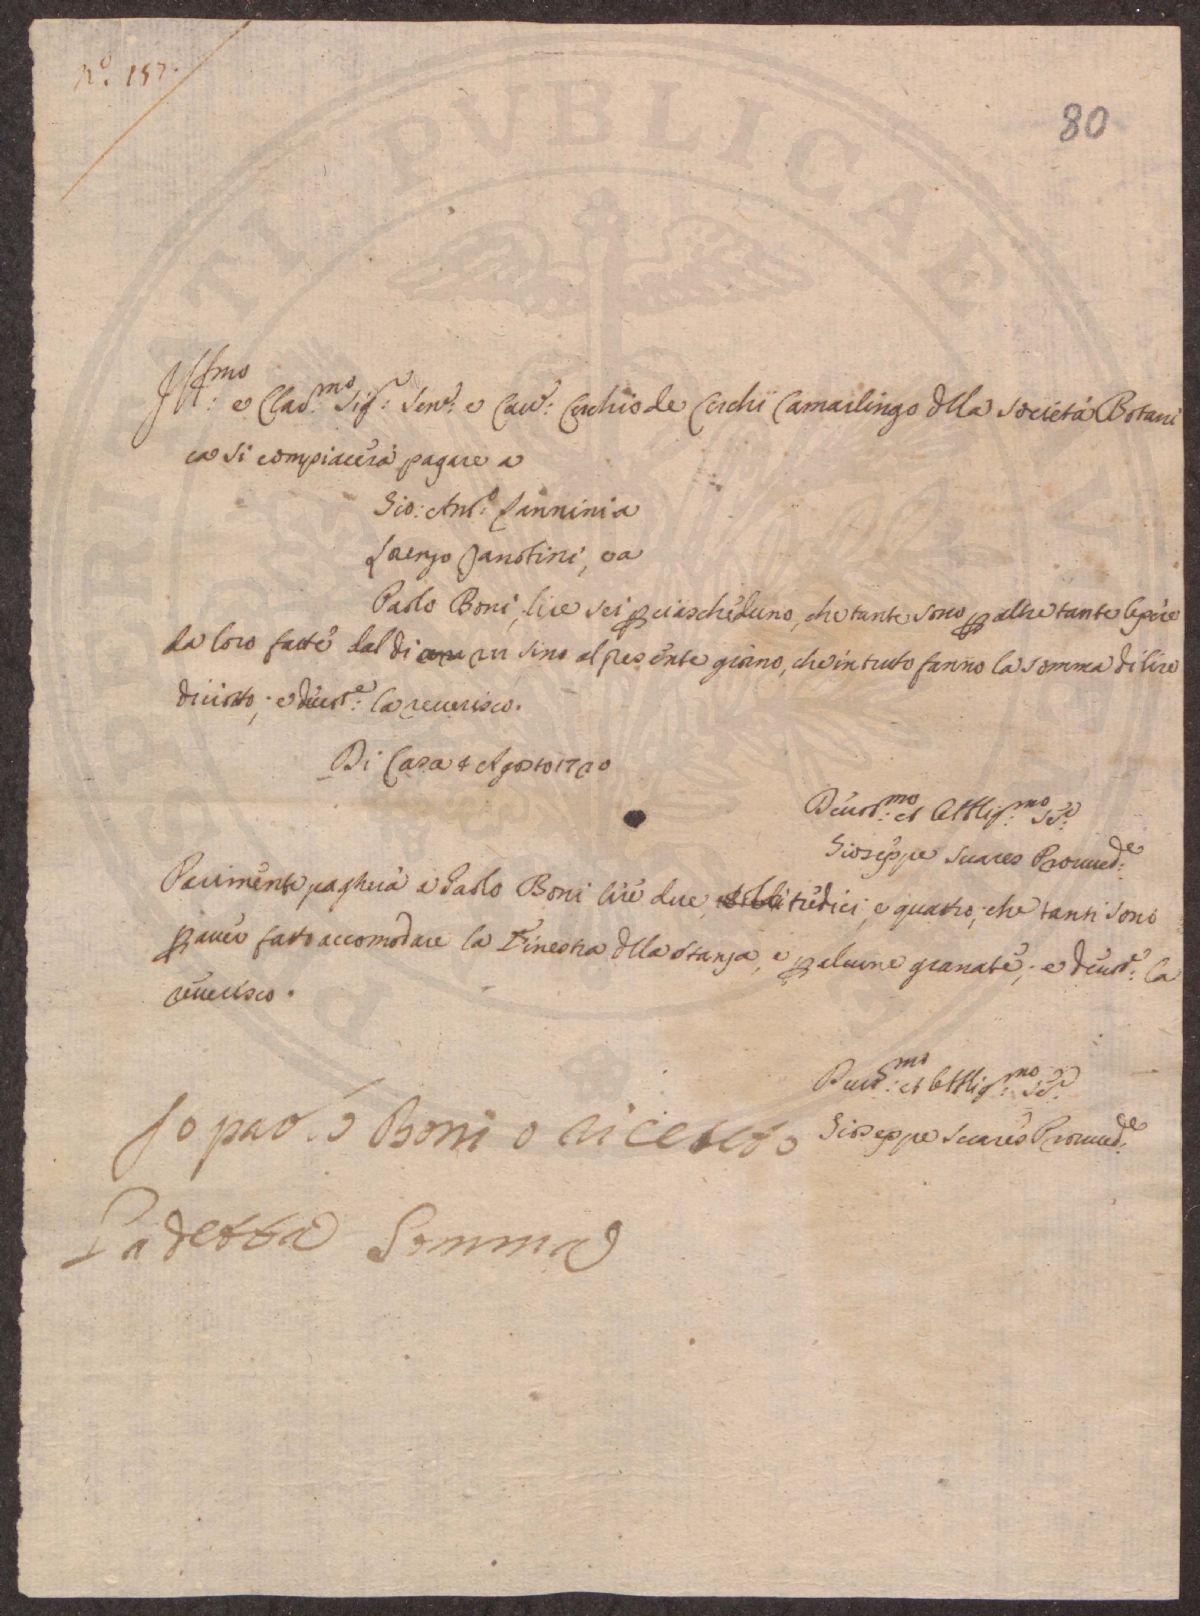 N.º 157.
80
Ill.mo e Clar.mo Sig.re Sen.e e Cav.e Cerchio de Cerchi Camarlingo dlla società Botani
ca si compiacerà pagare a
Gio: Ant.o Canninia
Lorenzo Zanobini, e a
Paolo Boni, lire sei p ciascheduno, che tante sono p altre tante Opére
da loro fatte dal di sino al preśente giorno, che in tutto fanno la somma di lire
diciotto; e devot.e la reverisco.
Di Casa 4 Agosto 1720
Devot.mo et Obblig.mo Se.e
Gioseppe Suares Provved.e
Parimente pagherà a Paolo Boni lire due, tredici, e quatro, che tanti sono
p aver fatto accomodare la Finestra dlla stanza, e p alcune granate; e devot.e la
reverisco.
Devot.mo et Obblig.mo Se.e
Gioseppe Suares Provved.e
Jo paolo Boni o riceuto
la detta Somma